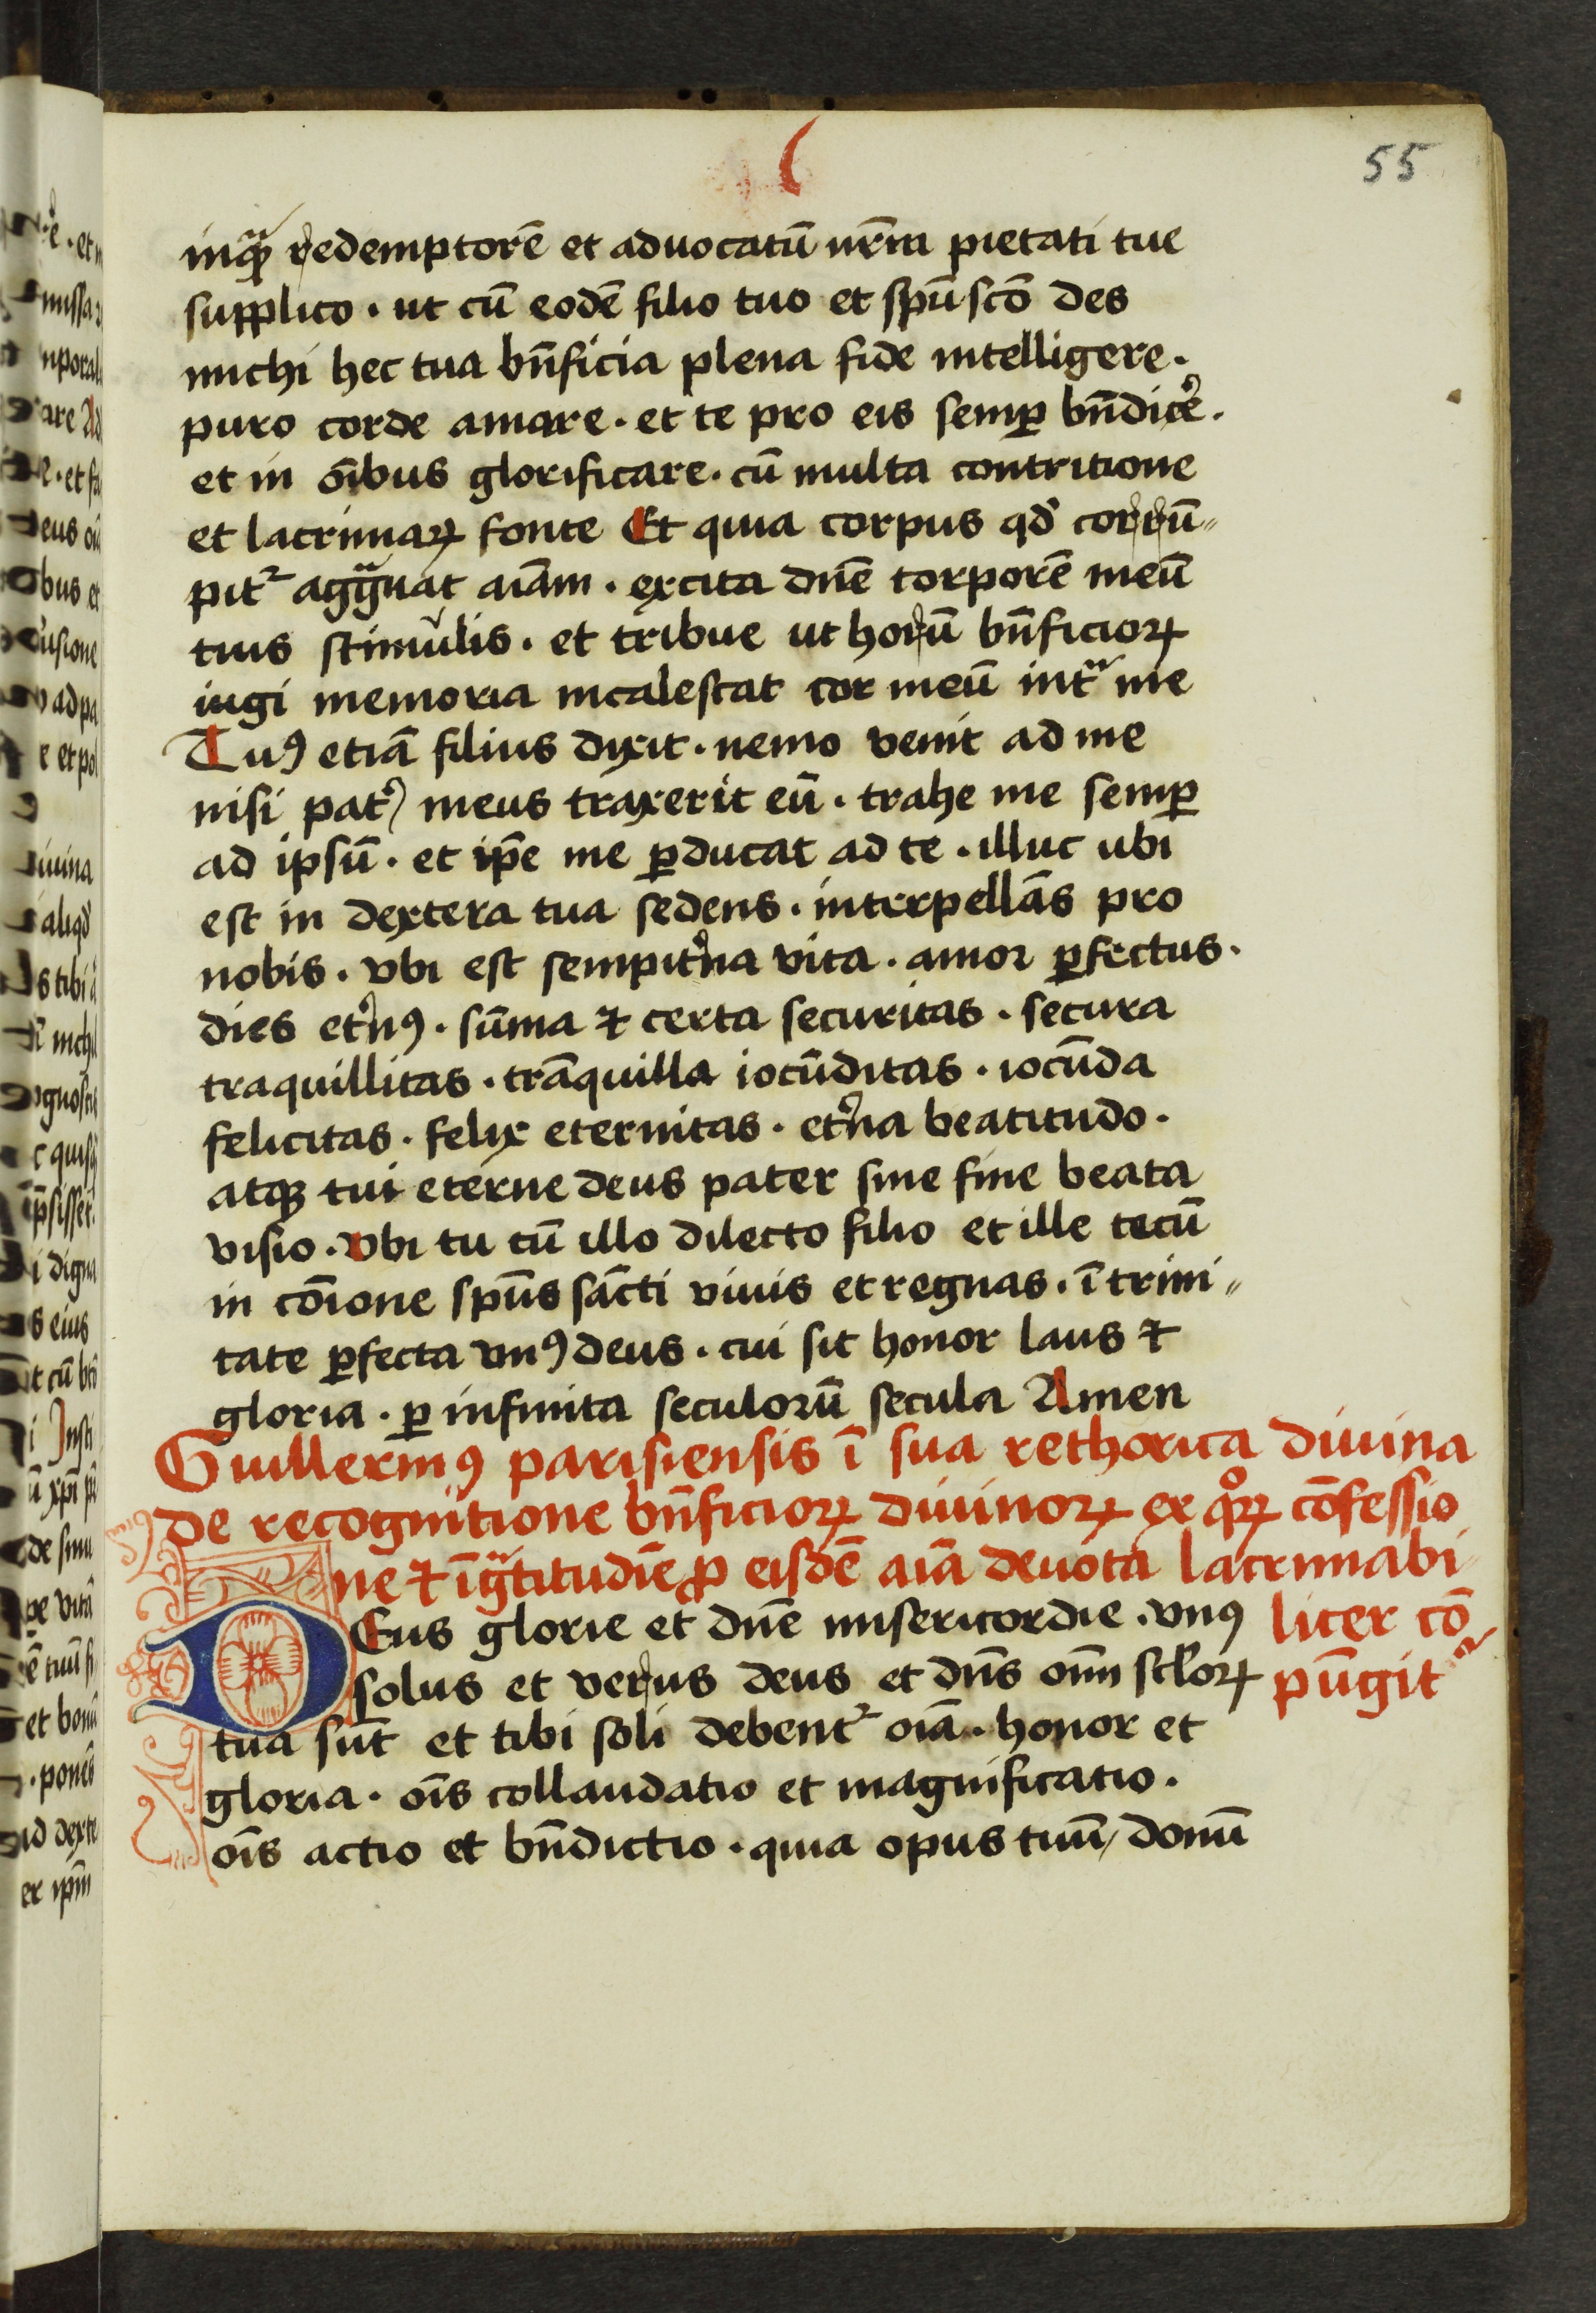 55
inquͣꝫ redemptorē et aduocatū nr̄m pietati tue
supplico · ut cū eodē filio tuo et spū scō des
michi hec tua bn̄ficia plena fide intelligere ·
puro corde amare · et te pro eis semꝑ bn̄dicẻ ·
et in oībus glorificare · cū multa contritione
et lacrimaꝝ fonte Et quia corpus qd̓ corrū„
pitᷣ aggͣuat aīam · excita dn̄e torporē meū
tuis stimulis · et tribue ut horū bn̄ficioꝝ
iugi memoria incalescat cor meū intͣ me
Tuꝰ etiā filius dixit · nemo venit ad me
nisi pat̓ meus traxerit eū · trahe me semꝑ
ad ipsū · et ip̄e me ꝑducat ad te · illuc ubi
est in dextera tua sedens · interpellās pro
nobis · vbi est sempit̓na vita · amor ꝑfectus ·
dies et̓nꝰ · sūma ⁊ certa securitas · secura
traquillitas · trāquilla iocūditas · iocūda
felicitas · felix eternitas · et̓na beatitudo ·
atqꝫ tui eterne deus pater sine fine beata
visio · vbi tu cū illo dilecto filio et ille tecū
in cōione spūs sācti viuis et regnas · ī trini„
tate ꝑfecta vnꝰ deus · cui sit honor laus ⁊
gloria · ꝑ infinita seculorū secula Amen
Guillermꝰ parisiensis ī sua rethorica diuina
de recognitione bn̄ficioꝝ diuinoꝝ ex qͦꝝ cōfessio
ne ⁊ īgͣtitudīe ꝓ eisdē aīa deuota lacrimabi
liter cō
pūgitᷣ
DEus glorie et dn̄e misericordie · vnꝰ
solus et verus deus et dn̄s om̄i scl̓oꝝ
tua sūt et tibi soli debentᷣ oīa · honor et
gloria · oīs collaudatio et magnificatio ·
oīs actio et bn̄dictio · quia opus tuū / donū